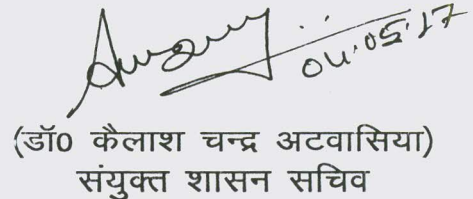 04.05.17
(डॉ0 कैलाश चन्द्र अटवासिया)
संयुक्त शासन सचिव